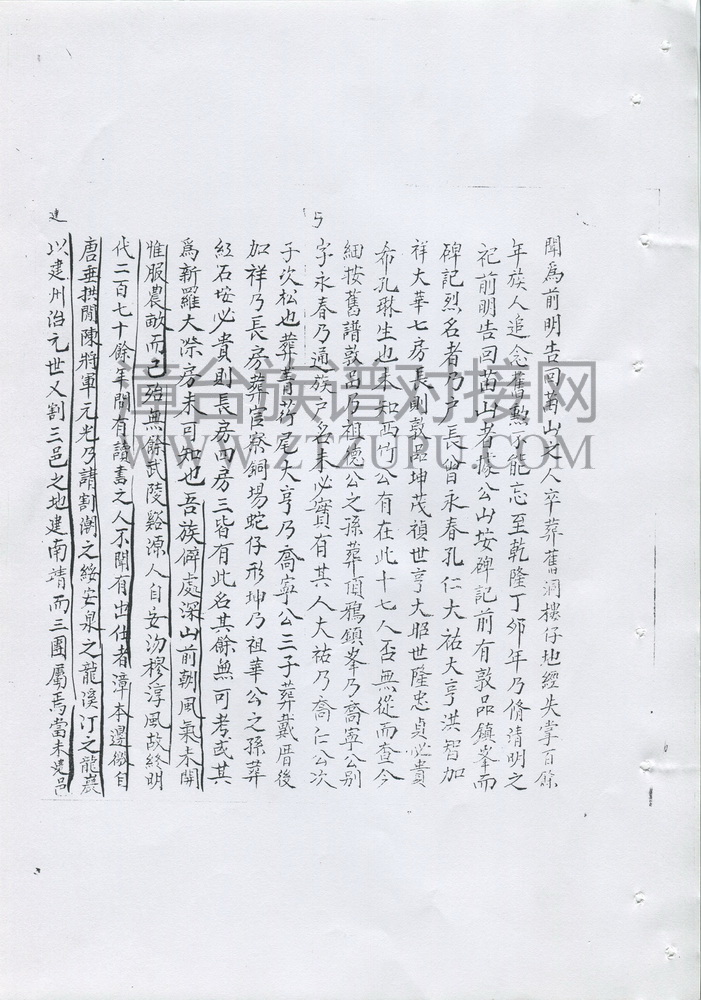 聞為前明告回苗山之人卒葬舊洞樓仔地經失掌百餘
年族人追念舊勲不能忘至乾隆丁卯年乃脩清明之
祀前明告回苗山者據公山坟碑記前有敦品鎮峯而
碑記烈名者乃户長曾永春孔仁大祐大亨洪智加
祥大華七房長則敦品坤茂禎世亨大昭世隆忠貞必貴
希孔琳生也未知西竹公有在此十七人否無從而查今
細按舊譜敦品乃祖德公之孫葬頂鴉鎮峯乃喬寧公別
字永春乃通族户名未必實有其人大祐乃喬仁公次
子次松也葬菁竹尾大亨乃喬寧公三子葬戴厝後
加祥乃長房葬官寮銅場蛇仔形坤乃祖華公之孫葬
紅石坟必貴則長房四房三皆有此名其餘無可考或其
為新羅大漈房未可知也吾族僻處深山前朝風氣未開
惟服農畝而已殆無餘武陵谿源人自安沕穆淳風故終明
代二百七十餘年間有讀書之人不聞有出仕者漳本邊徼自
唐垂拱間陳將軍元光乃請割潮之綏安泉之龍溪汀之龍巖
以建州治元世又割三邑之地建南靖而三團屬焉當未吳邑
5
建
重合族谱对接网
WWW.ZTZUPU.COM